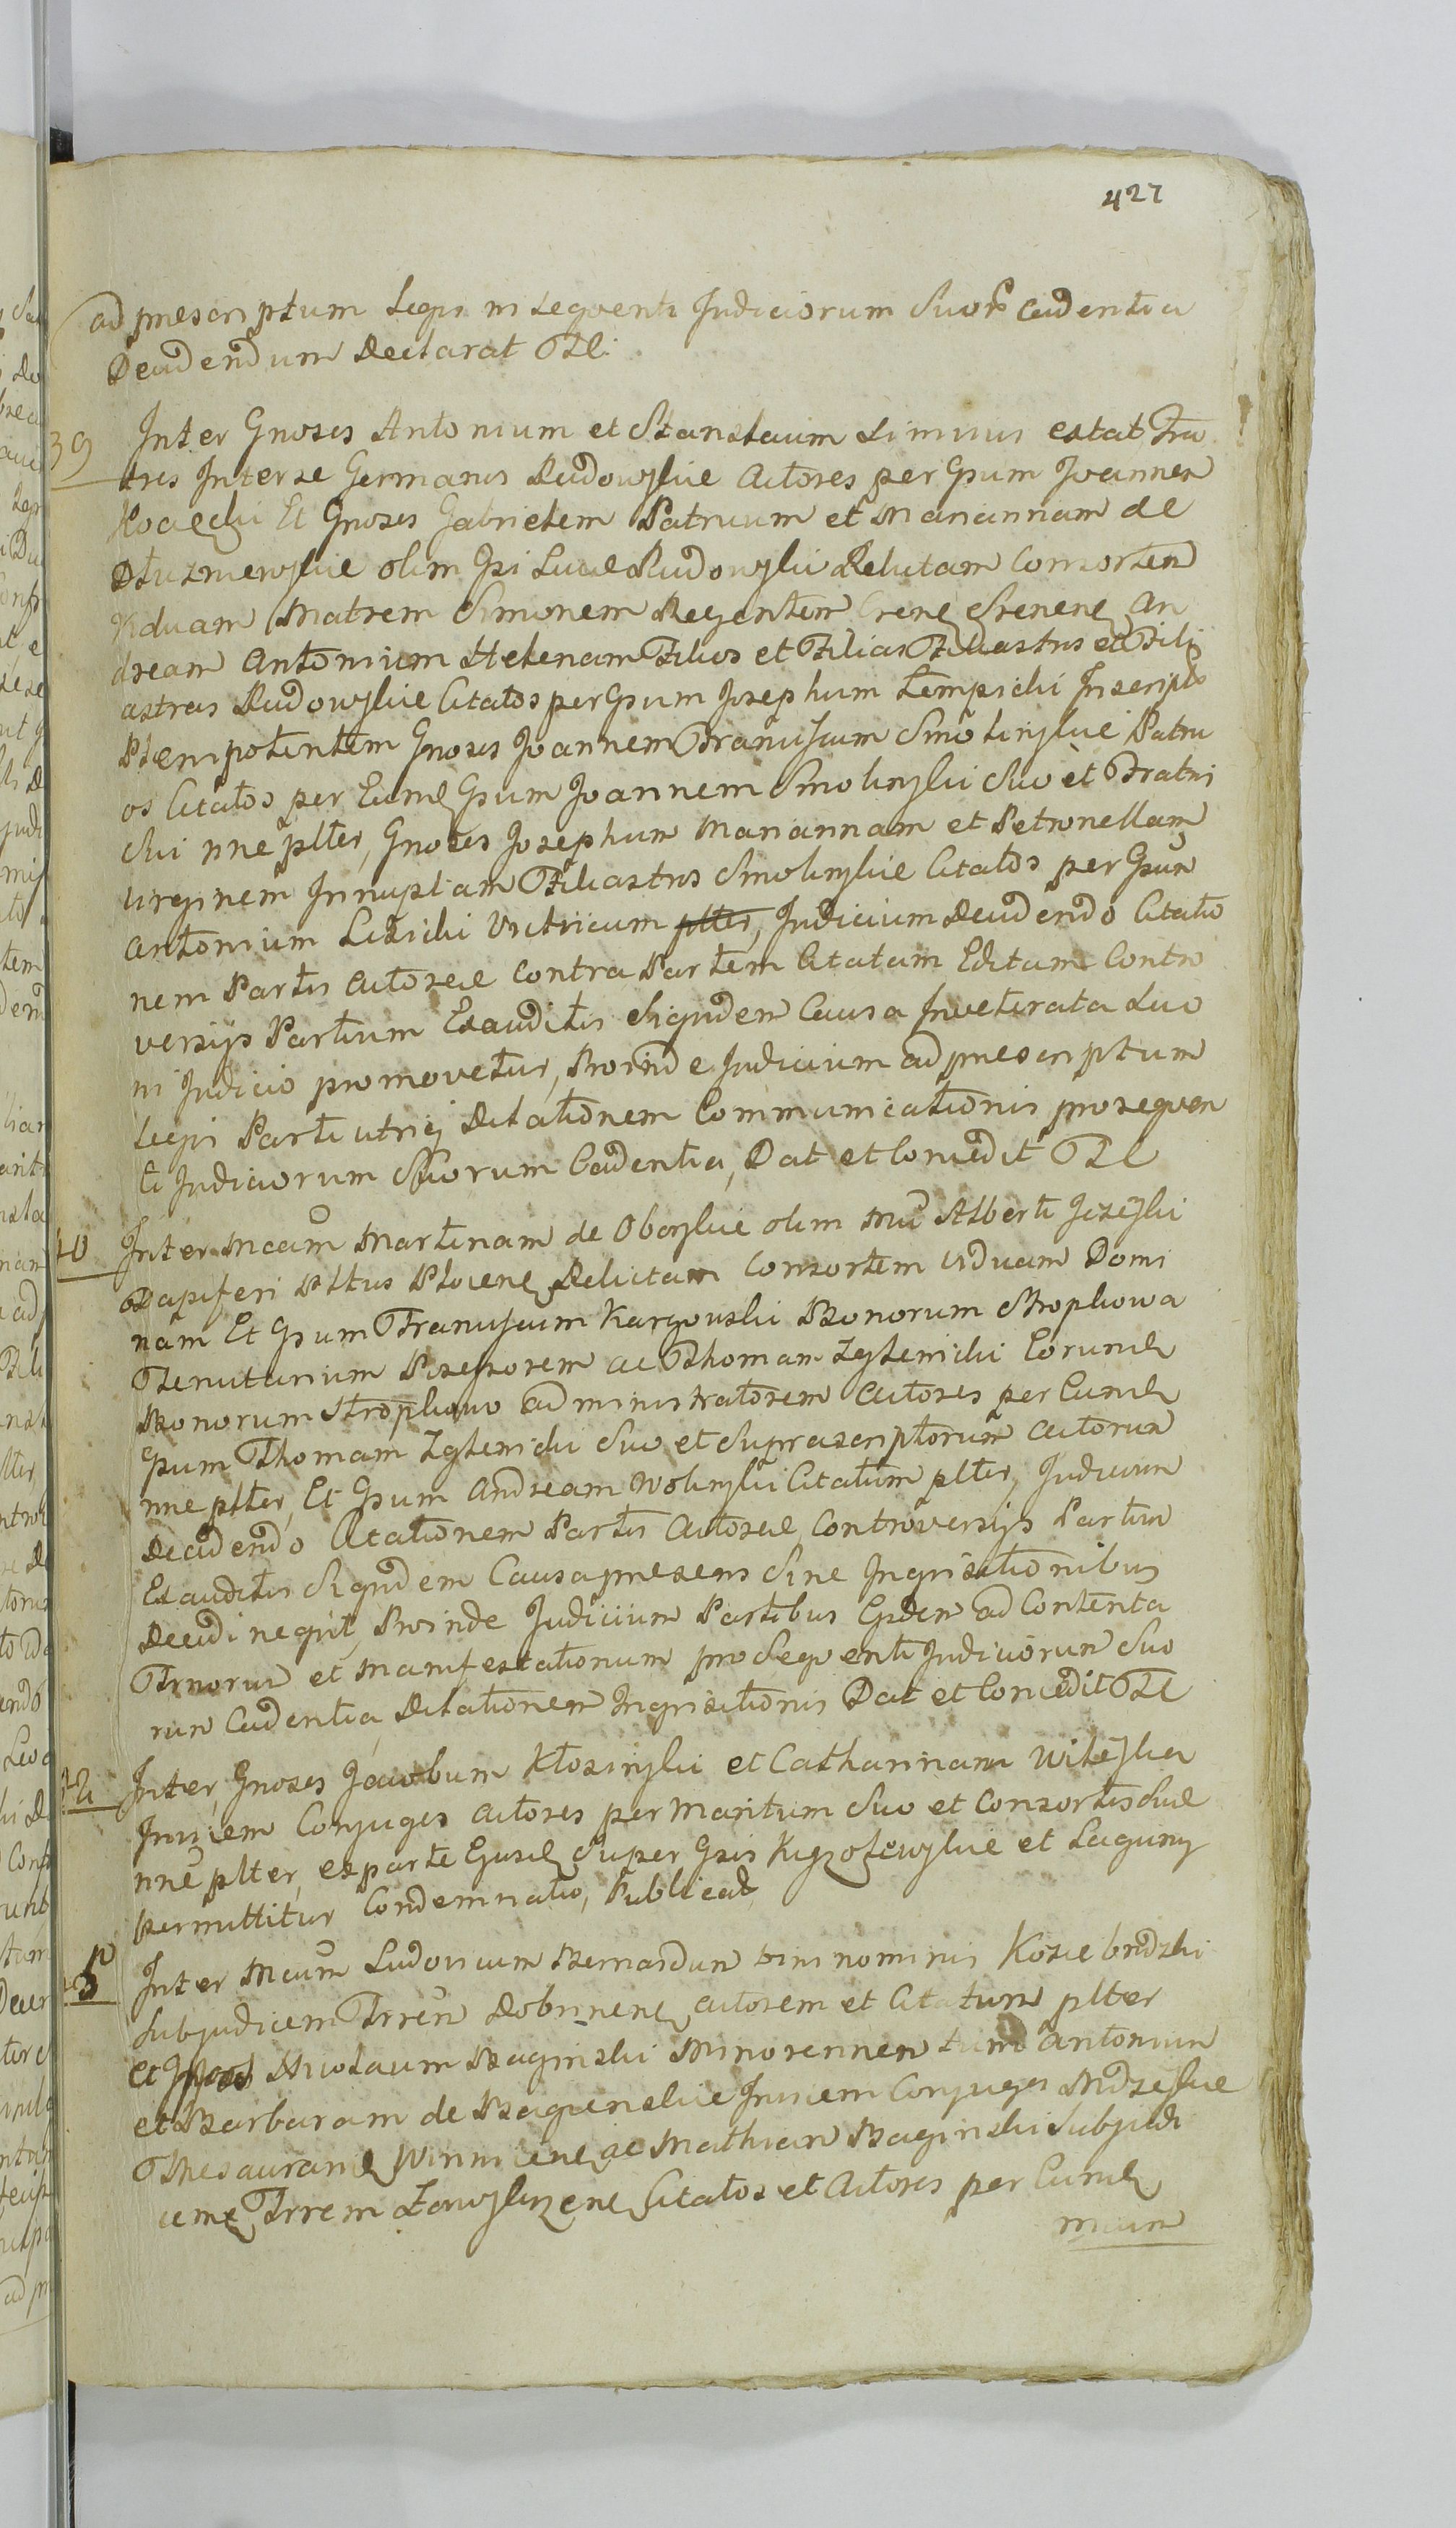 427
ad præscriptum Legis in sequenti Judiciorum Suor cadentia
Decidendum Declarat Tt.
39 Inter Gnosos Antonium et Stanislaum Liminus extat Fra
tres Inter se Germanos Rudowskie Actores per Gsum Joannem
Et Gnosos Gabrielem Patruum et Mariannam de
Dłuzniewskie olim Gsi Lucæ Rudowski Relictam Consortem
Viduam Matrem Simonem Regentem An
dream Antonium Helenam Filios et Filias Filiastros et Fili
astras Rudowskie Citatos per Gsum Josephum Lempicki Inscripto
Plenipotentem Gnosos Joannem Franciscum Smolinskie Patru
os Citatos per Eund Gsum Joannem Smolinski Suo et Fratris
Sui nne pltter, Gnosos Josephum Mariannam et Petronellam
Virginem Innuptam Filiastros Smolinskie Citatos per Gsum
Antonium Lisicki Vitricum pltter, Judicium Decidendo Citatio
nem Partis Actoreæ contra Partem Citatam Editam Contro
versijs Partium Exauditis Siquidem Causa Inveterata Suo
in Judicio promovetur, Proinde Judicium ad præscriptum
Legis Parti utriq Dilationem Communicationis pro sequen
ti Judiciorum Suorum Cadentia, Dat et Concedit Tt
40 Inter Mcam Martinam de Oborskie olim Mci Alberti Jezewski
Dapiferi Pltus Plocen Relictam Consortem Viduam Domi
nam Et Gsum Franciscum Kargowski Bonorum Stropkowa
Tenutarium Possessorem ac Thomam Zglenicki Eorund
Bonorum Stropkowo administratorem Actores per Eund
Gsum Thomam Zglenicki Suo et Suprascriptorum Actorum
nne pltter, Et Gsum Andream Wolinski Citatum pltter, Judicium
Decidendo Citationem Partis Actoreæ Controversijs Partium
Exauditis Siquidem Causa præsens Sine Inquisitionibus
Decidi nequit, Proinde Judicium Partibus Eisdem ad Contenta
Trnorum et Manifestationum pro Sequenti Judiciorum Suo
rum Cadentia, Dilationem Inquisitionis Dat et Concedit Tt
Inter Gnosos Jacobum Kłosinski et Catharinam
Invicem Conjuges Actores per Maritum Suo et Consortis Suæ
nne pltter, ex parte Ejusd Super Gsis et
permittitur Condemnatio, Publicat
Inter Mcum Ludovicum Bernardum bini nominis Koziebrodzki
Subjudicem Trren Dobrinen Actorem et Citatum pltter
et Nicolaum Baginski Minorennem tum Antonium
et Barbaram de Baginskie Invicem Conjuges
Thesaurarid Winnicen ac Mathiam Baginski Subjudi
cem Trrem Citatos et Actores per Eund
mcum